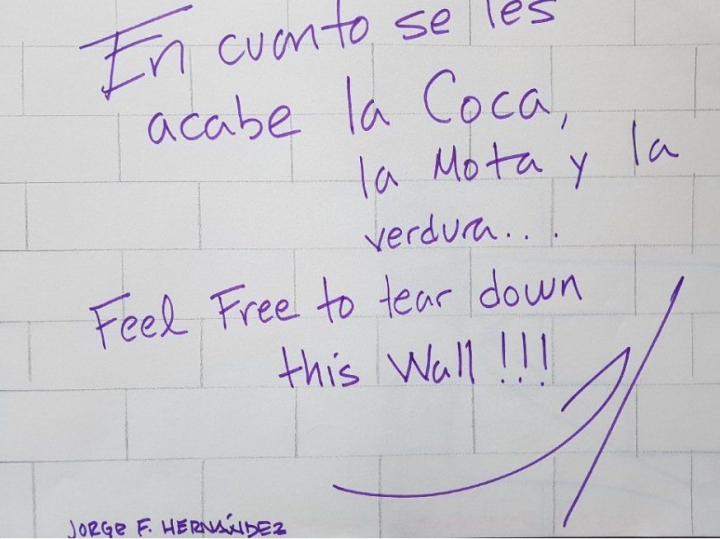 En cuanto se les
acabe la Coca,
la Mota y la
verdura...
Feel Free to tear down
this Wall!!!
JORGE F. HERNÁNDEZ